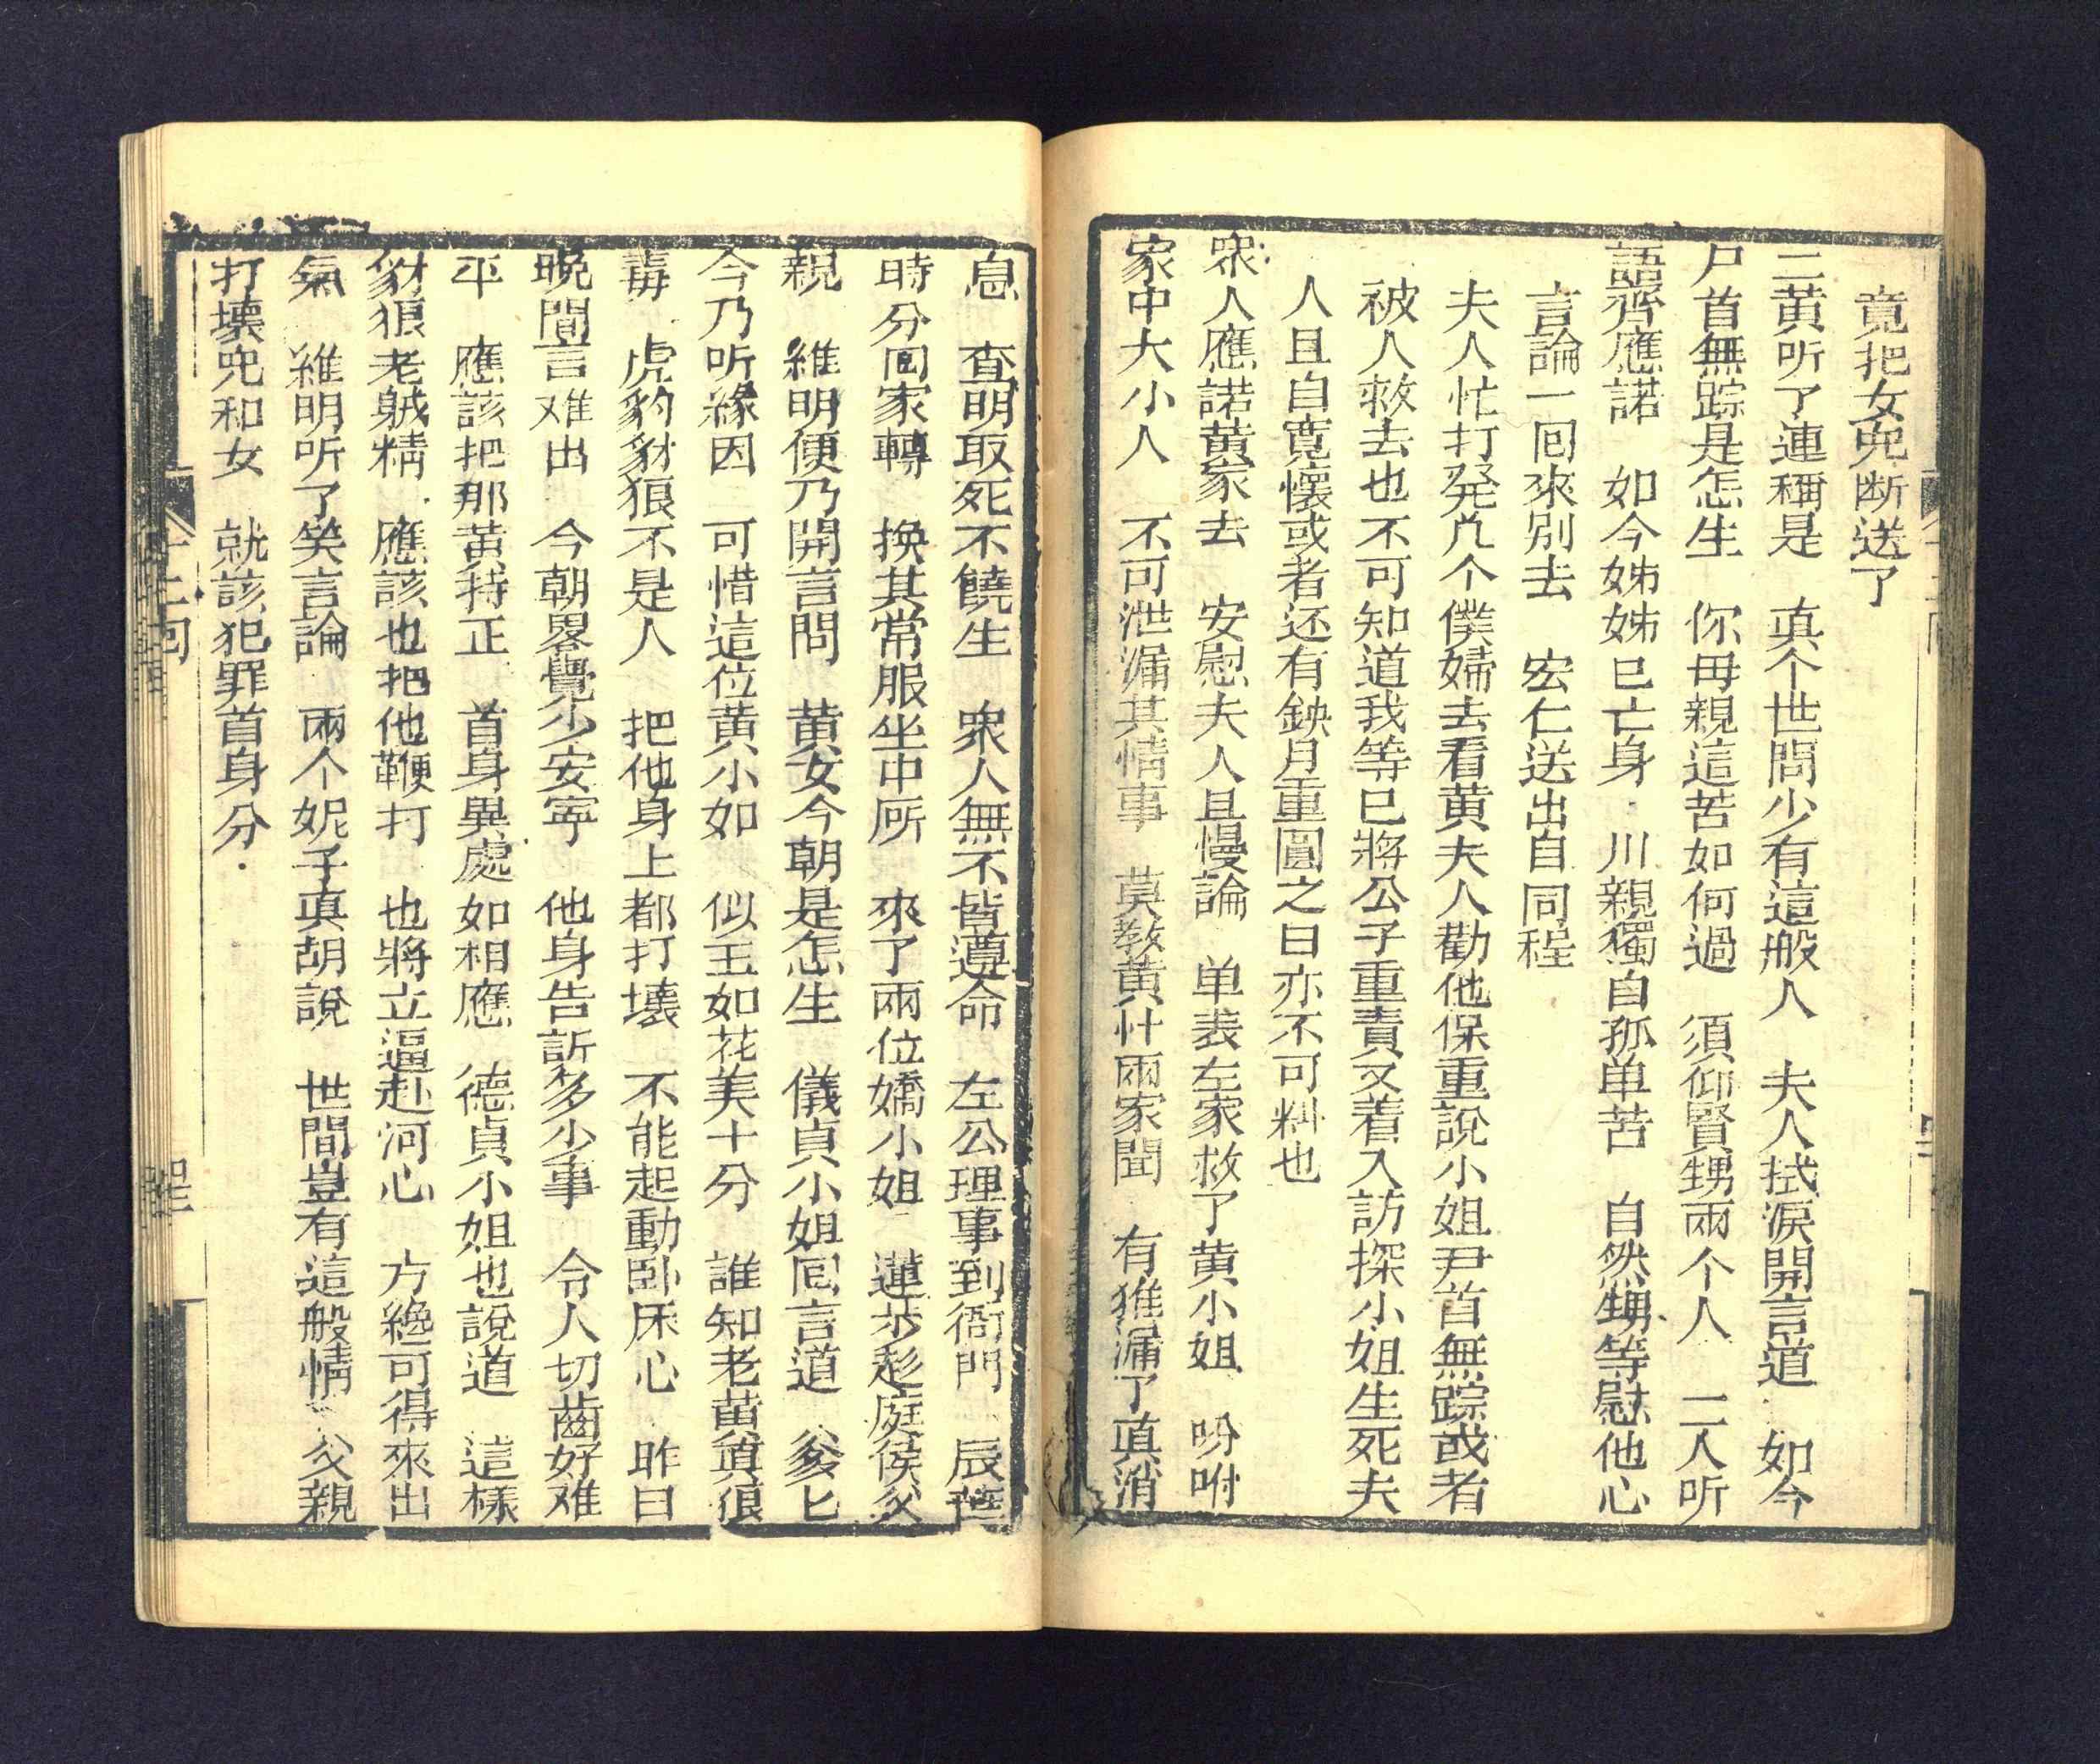 竟把女児断送了
二黄听了連稱是　真个世間少有這般人　夫人拭淚開言道　如今
尸首無踪是怎生　你母親這苦如何過　須仰賢甥兩个人　二人听
語齊應諾　如今姊姊已亡身　川親獨自孤单苦　自然甥等慰他心
言論一囘來別去　宏仁送出自同程
夫人忙打発几个僕婦去看黄夫人勸他保重說小姐尹首無踪或者
被人救去也不可知道我等已將公子重責又着入訪探小姐生死夫
人且自寛懷或者还有鈌月重圓之日亦不可料也
衆人應諾黄家去　安慰夫人且慢論　单表左家救了黄小姐　吩咐
家中大小人　不可泄漏其情事　莫教黄廾兩家聞　有誰漏了真消
息　查明取死不饒生　衆人無不皆遵命　左公理事到衙門　辰𦯧
時分囘家轉　换其常服坐中㕔　來了兩位嬌小姐　蓮步趁庭侯父
親　維明便乃開言問　黄女今朝是怎生　儀貞小姐囘言道　爹匕
今乃听緣因　可惜這位黄小如　似玉如花美十分　誰知老黄真狼
毒　虎豹豺狼不是人　把他身上都打壊　不能起動卧床心　昨日
晚間言难出　今朝畧覺少安寜　他身告訴多少事　令人切齒好难
平　應該把那黄持正　首身異處如相應　德貞小姐也說道　這樣
豺狼老賊精　應該也把他鞭打　也將立逼赴河心　方纔可得來出
氣　維明听了笑言論　兩个妮子真胡說　世間豈有這般情　父親
打壊児和女　就該犯罪首身分
十二囘